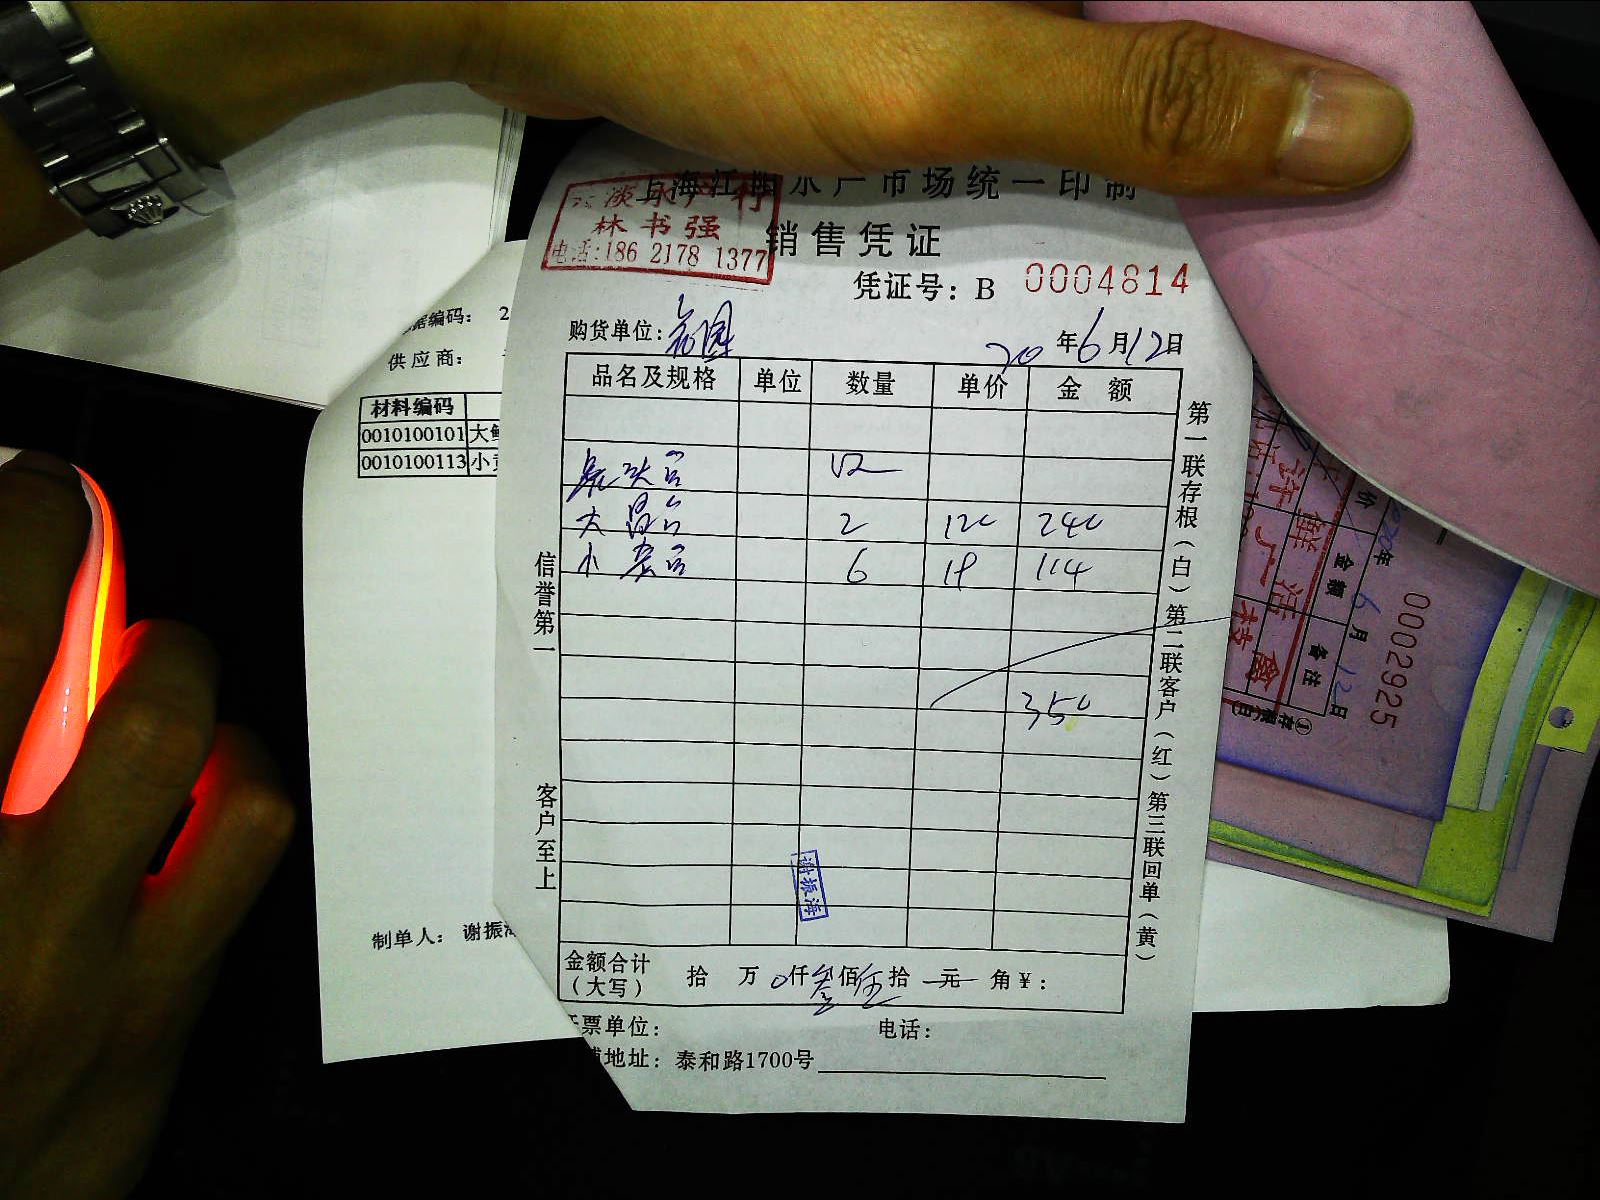 上海江阳水产市场统一印制
林书强
电话:186 2178 1377
销售凭证
凭证号：B 0004814
购货单位：
20 年 6 月 12 日
品名及规格 单位 数量 单价 金额
大 2 120 240
小 6 19 114
350
金额合计（大写） 拾 万 0 仟 叁 佰 伍 拾 元 角 ¥：
开票单位： 电话：
地址：泰和路1700号
信誉第一 客户至上
第一联存根（白）第二联客户（红）第三联回单（黄）
谢振海
据编码： 2
供应商：
材料编码
0010100101 大
0010100113 小
制单人： 谢振
0002925
2020年 6 月 12 日
金额 备注